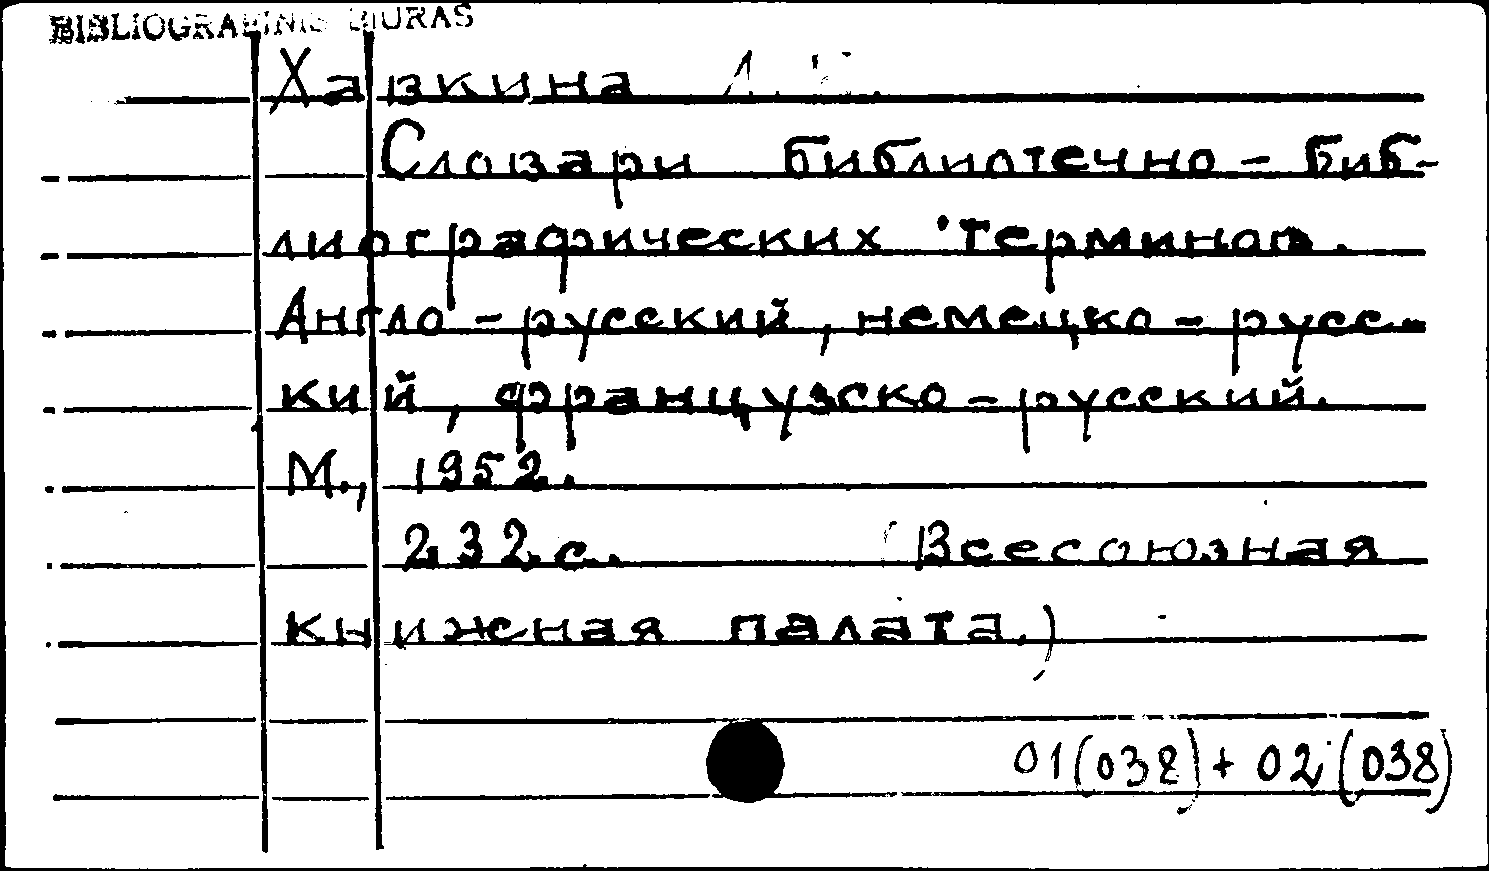 BIBLIOGRAFINIS BIURAS
Хавкина Л. Б.
Словари библиотечно-биб-
лиографических терминов.
Англо-русский, немецко-русс-
кий, французско-русский.
М., 1952.
232 с. (Всесоюзная
книжная палата.)
01(038)+02(038)